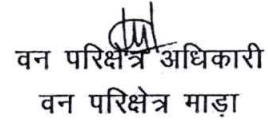 वन परिक्षेत्र अधिकारी
वन परिक्षेत्र माड़ा